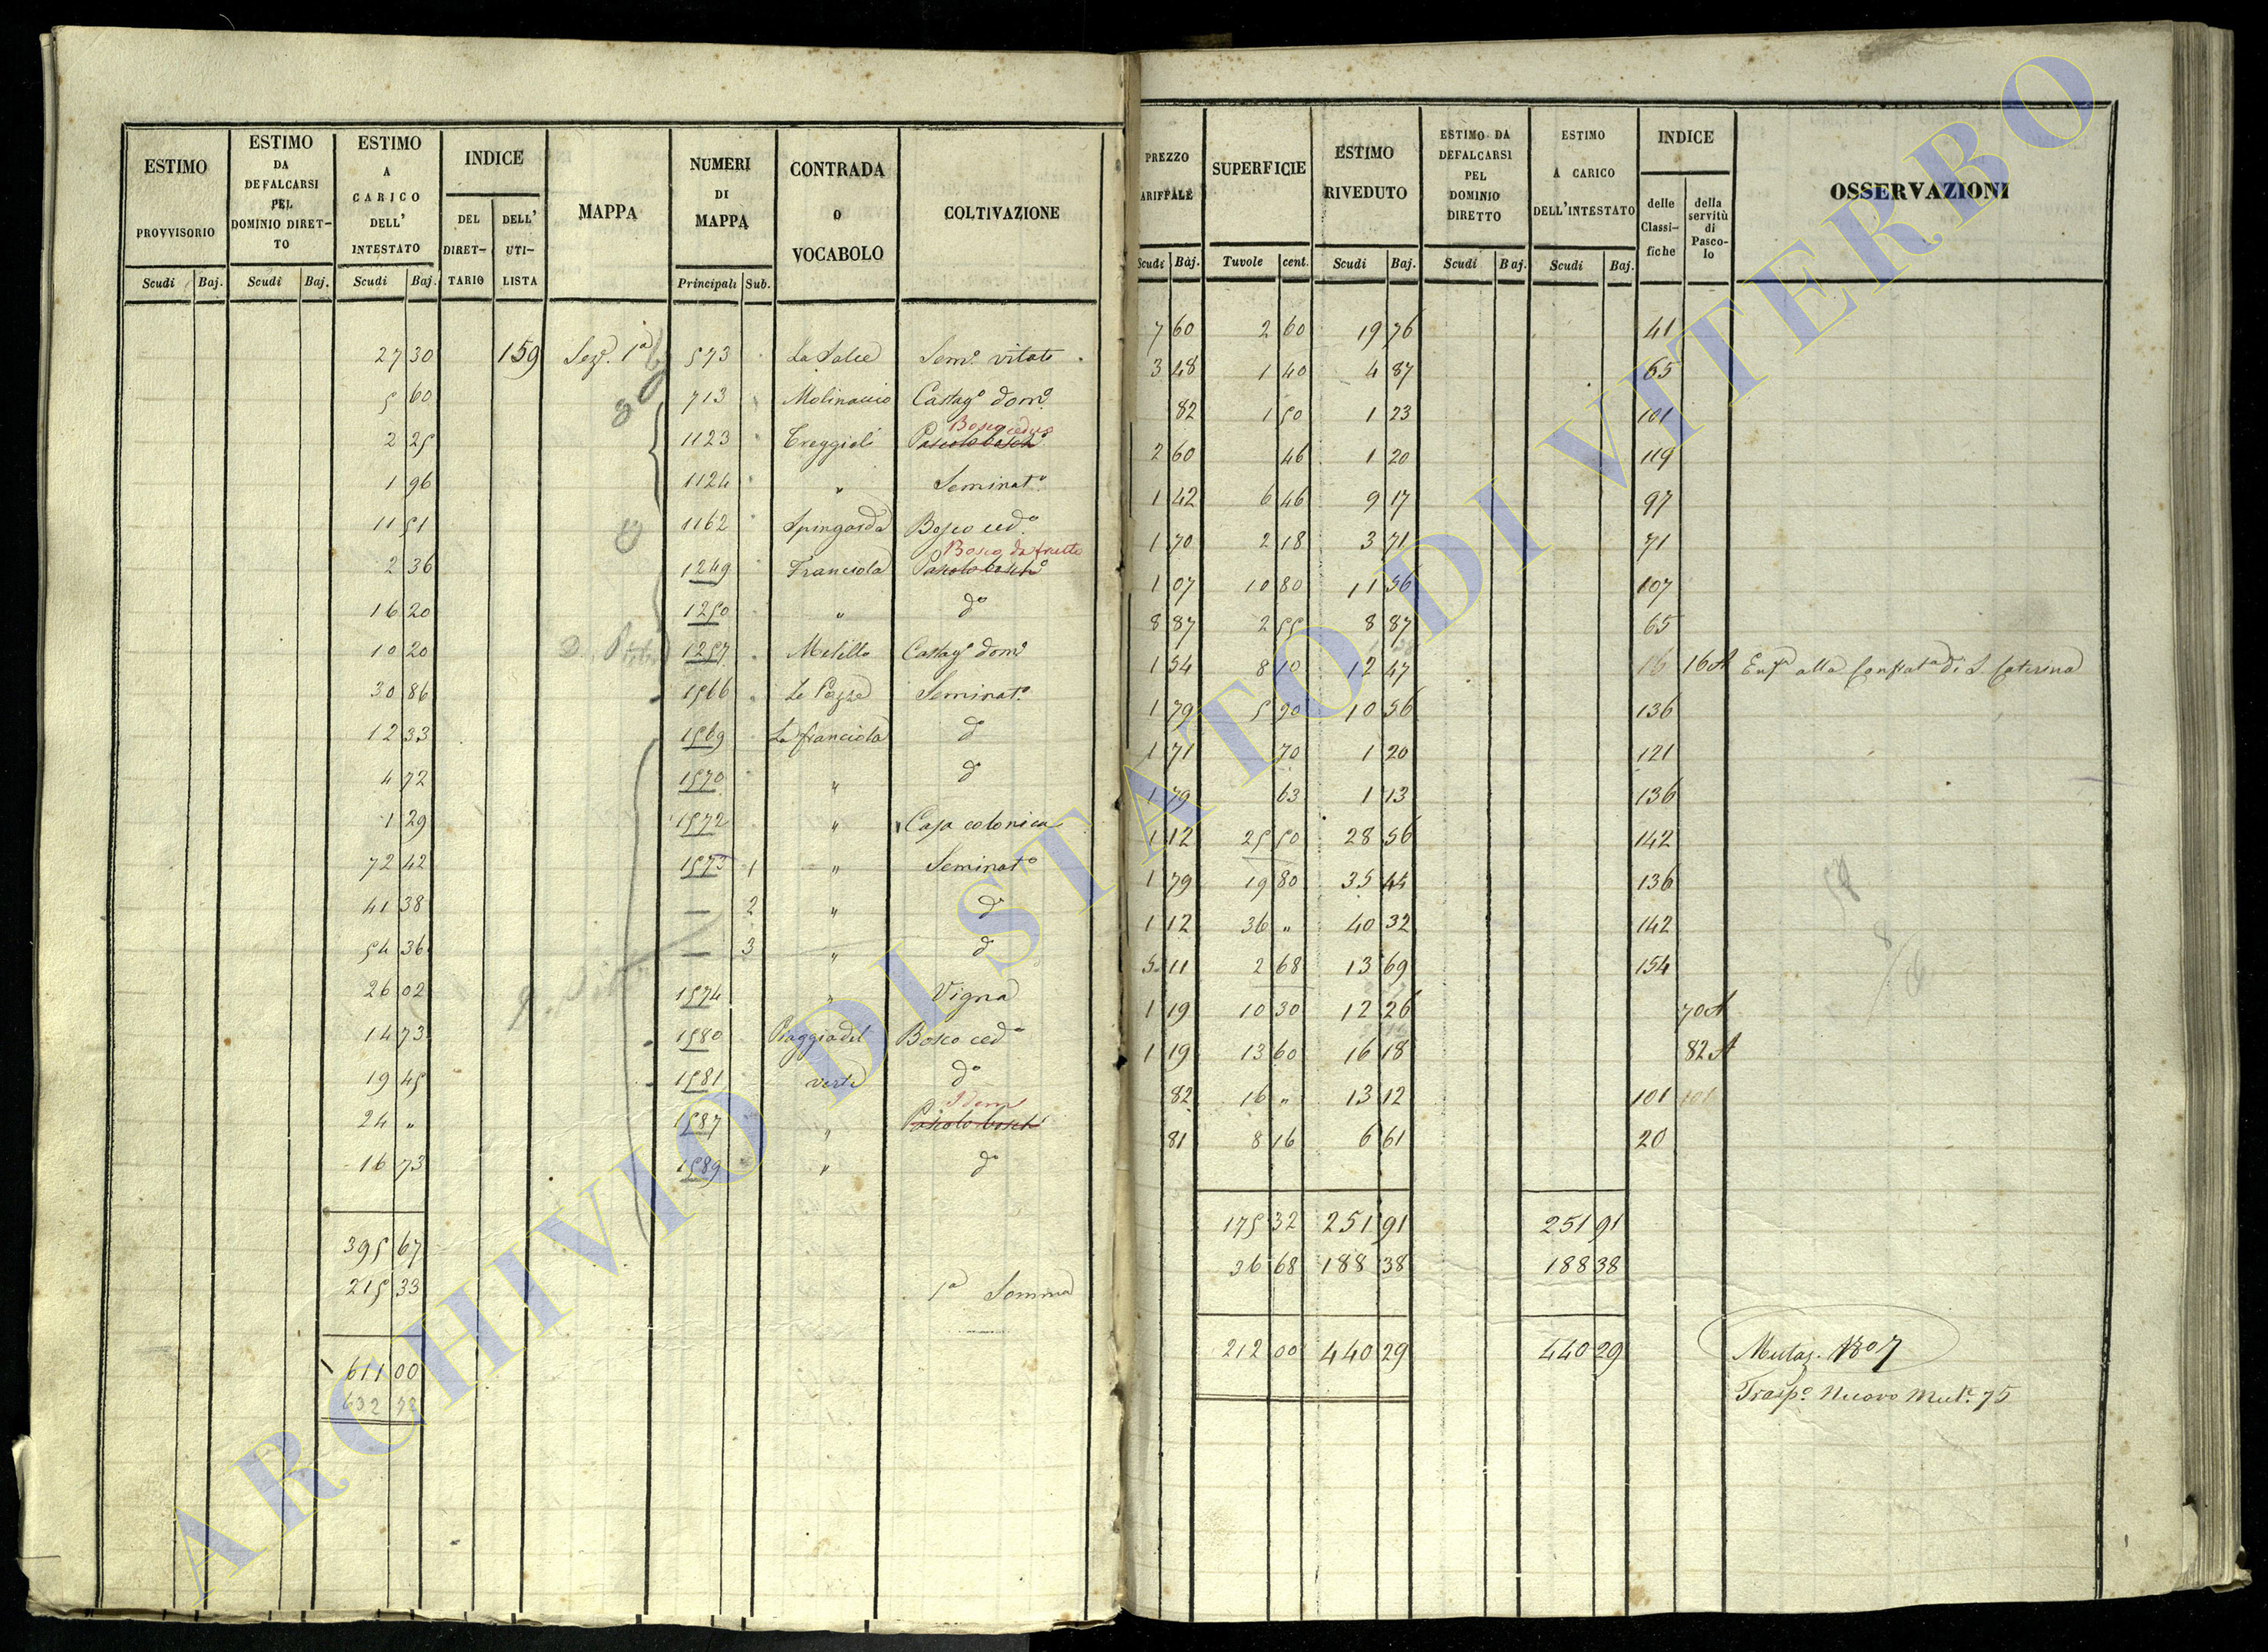 ESTIMO PROVVISORIO
ESTIMO DA DEFALCARSI PEL DOMINIO DIRET-TO
ESTIMO A CARICO DELL' INTESTATO
INDICE
DEL DIRET-TARIO
DELL' UTI-LISTA
MAPPA
NUMERI DI MAPPA
CONTRADA O VOCABOLO
COLTIVAZIONE
Scudi Baj. Scudi Baj. Scudi Baj. Principali Sub.
27 30 159 Sezᵉ. 1ª 573 La Salce Semᵒ vitato
5 60 713 Molinaccio Castagᵒ domᵒ
Bosco ceduo
2 25 1123 Creggioli Pascolo boschᵒ
1 96 1124 " Seminatᵒ
11 51 1162 Spingarda Bosco cedᵒ
Bosco da frutto
2 36 1249 Franciola Pascolo boschᵒ
16 20 1250 " dᵒ
10 20 1257 Melillo Castagᵒ domᵒ
30 86 1566 Le Pozze Seminatᵒ
12 33 1569 La franciola dᵒ
4 72 1570 " dᵒ
1 29 1572 " Casa colonica
72 42 1573 1 " Seminatᵒ
41 38 — 2 " dᵒ
54 36 — 3 " dᵒ
26 02 1574 " Vigna
14 73 1580 Piaggia del Bosco cedᵒ
19 45 1581 verte dᵒ
Idem
24 " 1587 " Pascolo bosch
16 73 1589 " dᵒ
395 67
215 33 1ª Somma
611 00
632 73
PREZZO ARIFFALE
SUPERFICIE
ESTIMO RIVEDUTO
ESTIMO DA DEFALCARSI PEL DOMINIO DIRETTO
ESTIMO A CARICO DELL'INTESTATO
INDICE
delle Classi-fiche
della servitù di Pasco-lo
OSSERVAZIONI
Scudi Baj. Tavole cent. Scudi Baj. Scudi Baj. Scudi Baj.
7 60 2 60 19 76 41
3 48 1 40 4 87 65
82 1 50 1 23 101
2 60 46 1 20 119
1 42 6 46 9 17 97
1 70 2 18 3 71 71
1 07 10 80 11 56 107
8 87 2 55 8 87 65
1 54 8 10 12 47 16 16A Enfᵃ alla Confratᵃ di S. Caterina
1 79 5 90 10 56 136
1 71 70 1 20 121
1 79 63 1 13 136
1 12 25 50 28 56 142
1 79 19 80 35 44 136
1 12 36 " 40 32 142
5 11 2 68 13 69 154
1 19 10 30 12 26 70A
1 19 13 60 16 18 82A
82 16 " 13 12 101 101
81 8 16 6 61 20
175 32 251 91 251 91
36 68 188 38 188 38
212 00 440 29 440 29
Mutaz. 1807
Traspᵒ Nuovo Mutᵉ 75
ARCHIVIO DI STATO DI VITERBO